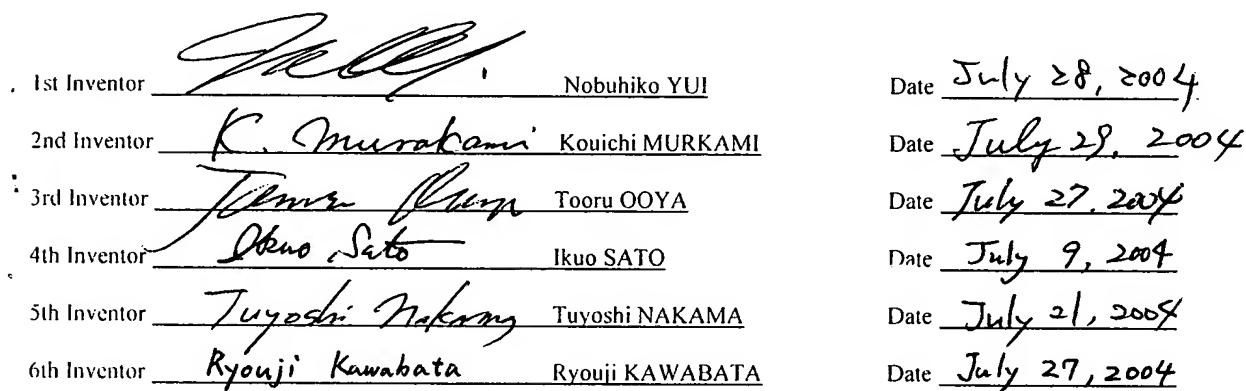 1st Inventor Nobuhiko YUI Date July 28, 2004
2nd Inventor K. Murakami Kouichi MURKAMI Date July 29, 2004
3rd Inventor Tooru OOYA Date July 27. 2004
4th Inventor Ikuo Sato Ikuo SATO Date July 9, 2004
5th Inventor Tuyoshi Nakama Tuyoshi NAKAMA Date July 21, 2004
6th Inventor Ryouji Kawabata Ryouji KAWABATA Date July 27, 2004